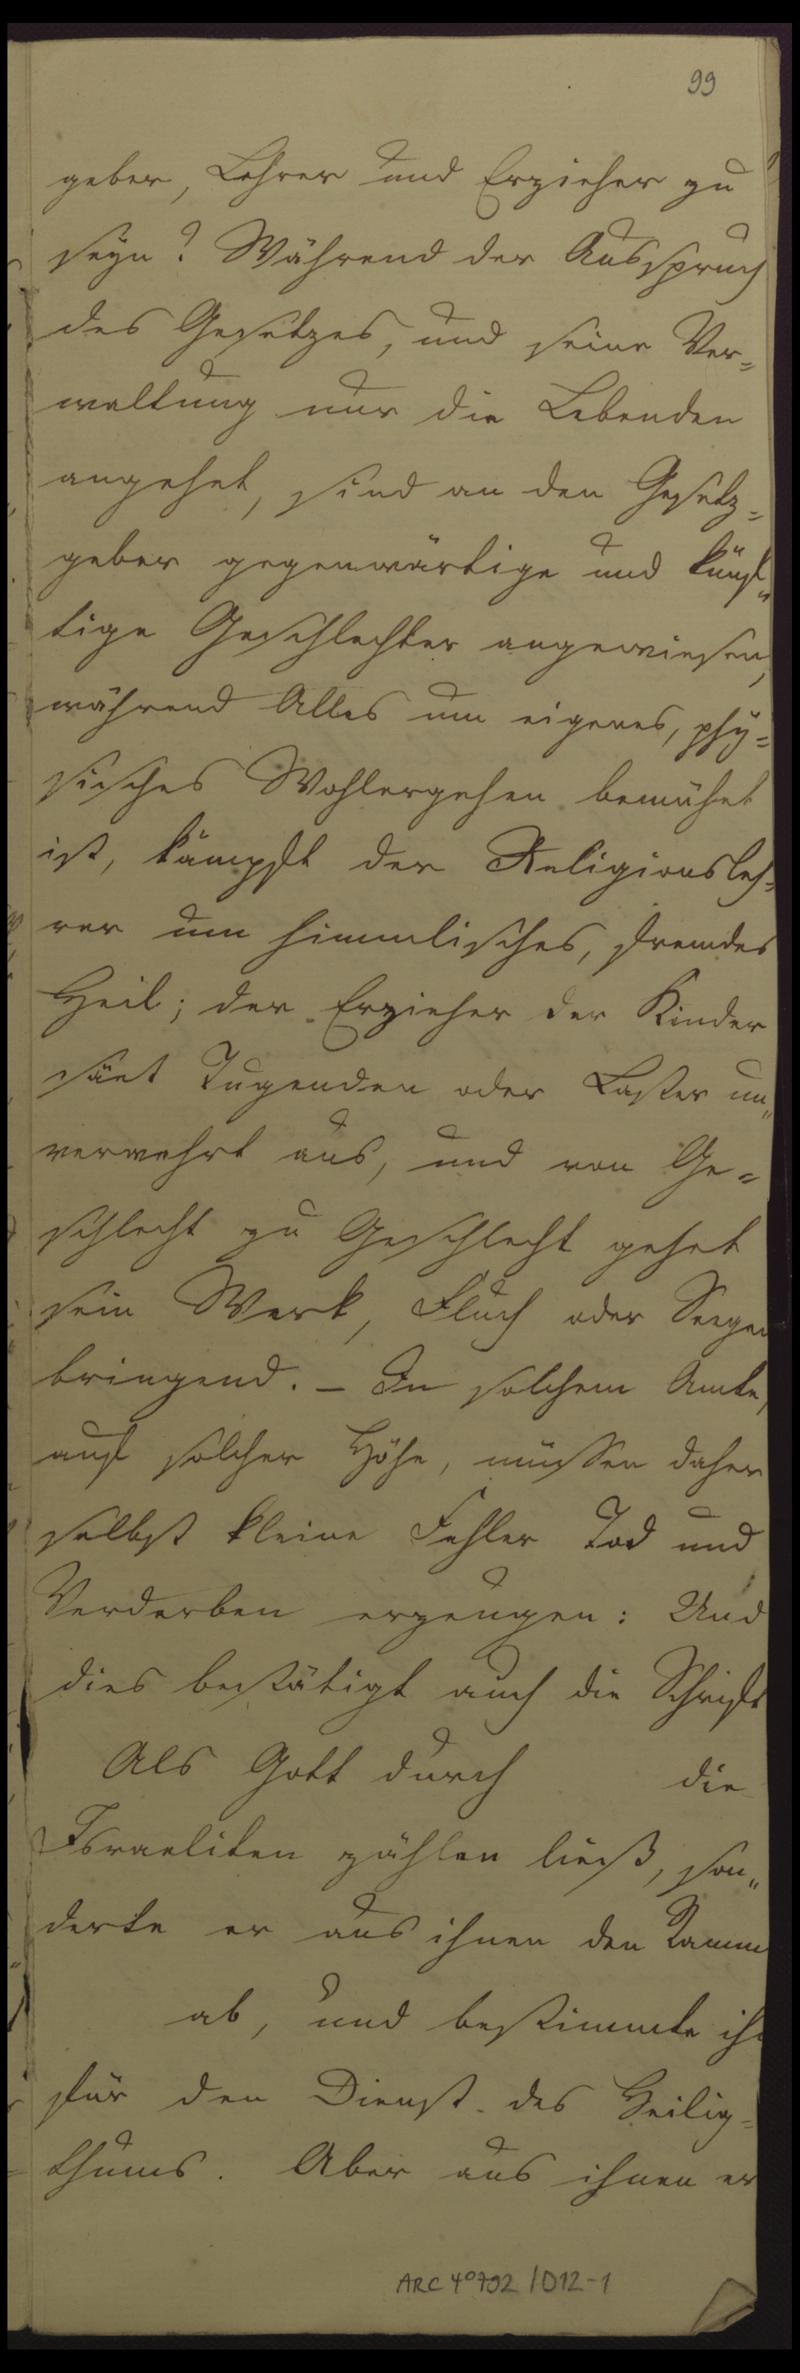 99
geber, Lehrer und Erzieher zu
seyn? Während der Ausspruch
des Gesetzes, und seine Ver=
waltung nur die Lebenden
angehet, sind an den Gesetz=
geber gegenwärtige und künf„
tige Geschlechter angewiesen,
während Alles um eigenes, phy=
sisches Wohlergehen bemühet
ist, kämpft der Religionsleh=
rer um himmlisches, fremdes
Heil; der Erzieher der Kinder
säet Tugenden oder Laster un„
verwehrt aus, und von Ge=
schlecht zu Geschlecht gehet
sein Werk, Fluch oder Seegen
bringend. – In solchem Amte,
auf solcher Höhe, müssen daher
selbst kleine Fehler Tod und
Verderben erzeugen: Und
dies bestätigt auch die Schrift
Als Gott durch die
Israeliten zählen ließ, son„
derte er aus ihnen den
ab, und bestimmte ihn
für den Dienst des Heilig=
thums. Aber aus ihnen er
ARC 4° 792 / D12-1